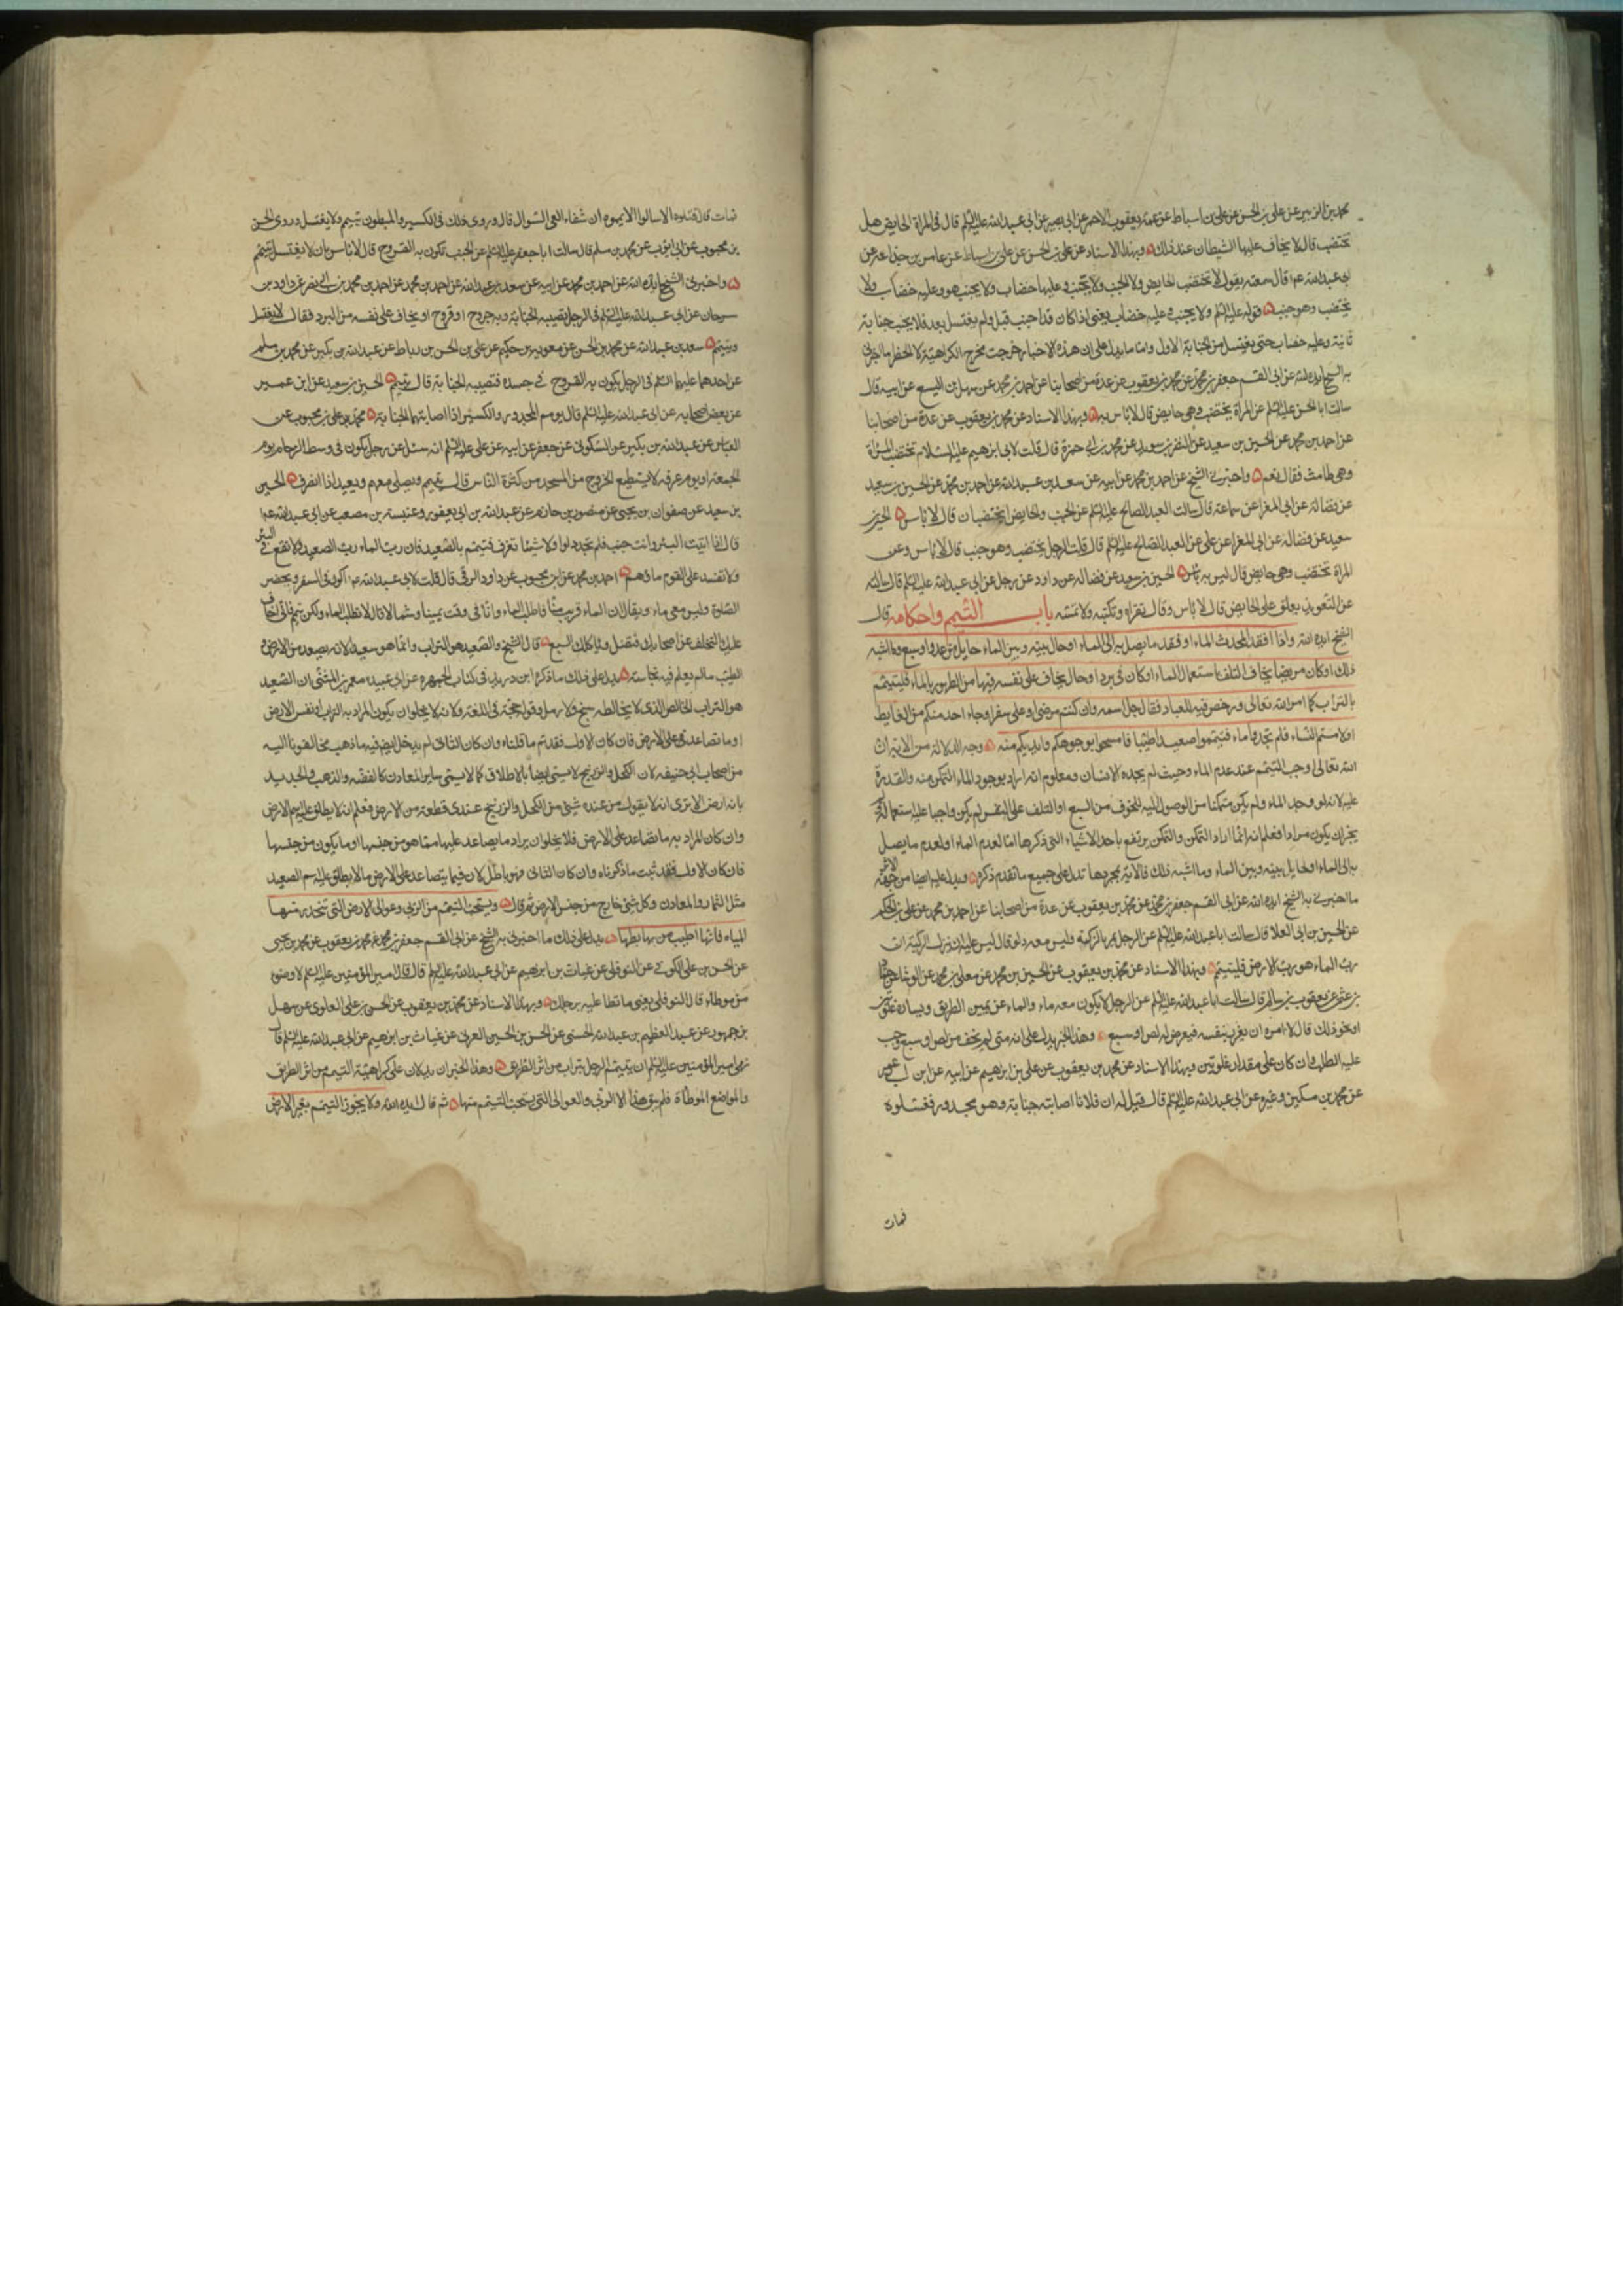 محمد بن الزبير عن علي بن الحسن عن علي بن اسباط عن عمه يعقوب الاحمر عن ابي بصير عن ابي عبد الله عليه السلم قال في المراة الحايض هل
تختضب قال لا يخاف عليها الشيطان عند ذلك وبهذا الاسناد عن علي بن الحسن عن علي بن اسباط عن عامر بن جذاعة عن
ابي عبد الله ع م قال سمعته يقول لا تختضب الحايض ولا الجنب ولا تجنب وعليها خضاب ولا يجنب هو وعليه خضاب ولا
يختضب وهو جنب قوله عليه السلم ولا يجنب وعليه خضاب يعني اذا كان قد اجنب قبل ولم يغتسل بعد فلا يجنب جنابة
ثانية وعليه خضاب حتى يغتسل من الجنابة الاول واما ما يدل على ان هذه الاخبار خرجت مخرج الكراهية لا الحظر ما اخبرني
به الشيخ ايده الله عن ابي القسم جعفر بن محمد عن محمد بن يعقوب عن عدة من اصحابنا عن احمد بن محمد عن سهل بن اليسع عن ابيه قال
سالت ابا الحسن عليه السلم عن المراة تختضب وهي حايض قال لا باس به وبهذا الاسناد عن محمد بن يعقوب عن عدة من اصحابنا
عن احمد بن محمد عن الحسين بن سعيد عن النضر بن سويد عن محمد بن ابي حمزة قال قلت لابي ابرهيم عليه السلام تختضب المراة
وهي طامث فقال نعم واخبرني الشيخ عن احمد بن محمد عن ابيه عن سعد بن عبد الله عن احمد بن محمد عن الحسين بن سعيد
عن فضالة عن ابي المغرا عن سماعة قال سالت العبد الصالح عليه السلم عن الجنب والحايض ايختضبان قال لا باس الحسين بن
سعيد عن فضالة عن ابي المغرا عن علي عن العبد الصالح عليه السلم قال قلت الرجل يختضب وهو جنب قال لا باس وعن
المراة تختضب وهي حايض قال ليس به باس الحسين بن سعيد عن فضالة عن داود عن رجل عن ابي عبد الله عليه السلم قال سالته
عن التعويذ يعلق على الحايض قال لا باس وقال تقراه وتكتبه ولا تمسه باب التيمم واحكامه قال
الشيخ ايده الله واذا فقد المحدث الماء او فقد ما يصل به الى الماء او حال بينه وبين الماء حايل من عدو او سبع وما اشبه
ذلك او كان مريضا يخاف التلف باستعمال الماء او كان في برد او حال يخاف على نفسه فيها من الطهور بالماء فليتيمم
بالتراب كما امر الله تعالى ورخص فيه للعباد فقال جل اسمه وان كنتم مرضى او على سفر او جاء احد منكم من الغايط
او لامستم النساء فلم تجدوا ماء فتيمموا صعيدا طيبا فامسحوا بوجوهكم وايديكم منه وجه الدلالة من الاية ان
الله تعالى اوجب التيمم عند عدم الماء وحيث لم يجده الانسان ومعلوم انه اراد بوجود الماء التمكن منه والقدرة
عليه لانه لو وجد الماء ولم يكن متمكنا من الوصول اليه للخوف من السبع او التلف على النفس لم يكن واجبا عليه استعماله
يجز ان يكون مرادا فعلم انه انما اراد التمكن والتمكن يرتفع باحد الاشياء التي ذكرها اما لعدم الماء او لعدم ما يصل
به الى الماء او لحايل بينه وبين الماء وما اشبه ذلك فالاية بمجردها تدل على جميع ما تقدم ذكره ويدل عليه ايضا من جهة الاثر
ما اخبرني به الشيخ ايده الله عن ابي القسم جعفر بن محمد عن محمد بن يعقوب عن عدة من اصحابنا عن احمد بن محمد عن علي بن الحكم
عن الحسين بن ابي العلا قال سالت ابا عبد الله عليه السلم عن الرجل يمر بالركية وليس معه دلو قال ليس عليه ان ينزل الركية ان
رب الماء هو رب الارض فليتيمم وبهذا الاسناد عن محمد بن يعقوب عن الحسين بن محمد عن معلى بن محمد عن الوشا عن حماد
بن عثمن عن يعقوب بن سالم قال سالت ابا عبد الله عليه السلم عن الرجل لا يكون معه ماء والماء عن يمين الطريق ويساره غلوتين
او نحو ذلك قال لا امره ان يغرر بنفسه فيعرض له لص او سبع وهذا الخبر يدل على انه متى لم يخف من لص او سبع وجب
عليه الطلب وان كان على مقدار غلوتين وبهذا الاسناد عن محمد بن يعقوب عن علي بن ابرهيم عن ابيه عن ابن ابي عمير
عن محمد بن مسكين وغيره عن ابي عبد الله عليه السلم قال قيل له ان فلانا اصابته جنابة وهو مجدور فغسلوه
فمات
فمات قال قتلوه الا سالوا الا يمموه ان شفاء العي السوال قال وروي ذلك في الكسير والمبطون يتيمم ولا يغتسل وروى الحسن
بن محبوب عن ابي ايوب عن محمد بن مسلم قال سالت ابا جعفر عليه السلم عن الجنب تكون به القروح قال لا باس بان لا يغتسل يتيمم
واخبرني الشيخ ايده الله عن احمد بن محمد عن ابيه عن سعد بن عبد الله عن احمد بن محمد عن احمد بن محمد بن ابي نصر عن داود بن
سرحان عن ابي عبد الله عليه السلم في الرجل تصيبه الجنابة وبه جروح او قروح او يخاف على نفسه من البرد فقال لا يغتسل
ويتيمم سعد بن عبد الله عن محمد بن الحسن عن معوية بن حكيم عن علي بن الحسن بن رباط عن عبد الله بن بكير عن محمد بن مسلم
عن احدهما عليهما السلم في الرجل يكون به القروح في جسده فتصيبه الجنابة قال يتيمم الحسين بن سعيد عن ابن عمير
عن بعض اصحابه عن ابي عبد الله عليه السلم قال يومم المجدور والكسير اذا اصابتهما الجنابة محمد بن علي بن محبوب عن
العباس عن عبد الله بن بكير عن السكوني عن جعفر عن ابيه عن علي عليه السلم انه سئل عن رجل يكون في وسط الزحام يوم
الجمعة او يوم عرفه لا يستطيع الخروج من المسجد من كثرة الناس قال يتيمم ويصلي معهم ويعيد اذا انصرف الحسين
بن سعيد عن صفوان بن يحيى عن منصور بن حازم عن عبد الله بن ابي يعفور وعنبسة بن مصعب عن ابي عبد الله ع م
قال اذا اتيت البئر وانت جنب فلم تجد دلوا ولا شيئا تغرف فتيمم بالصعيد فان رب الماء رب الصعيد ولا تقع في البئر
ولا تفسد على القوم ماؤهم احمد بن محمد عن ابن محبوب عن داود الرقي قال قلت لابي عبد الله ع م اكون في السفر وتحضر
الصلوة وليس معي ماء ويقال ان الماء قريب منا فاطلب الماء وانا في وقت يمينا وشمالا قال لا تطلب الماء ولكن تيمم فاني اخاف
عليك التخلف عن اصحابك فتضل وياكلك السبع قال الشيخ والصعيد هو التراب وانما هو سعيد لانه يصعد من الارض و
الطيب ما لم يعلم فيه نجاسة يدل على ذلك ما ذكره ابن دريد في كتاب الجمهرة عن ابي عبيده معمر بن المثنى ان الصعيد
هو التراب الخالص الذي لا يخالطه سبخ ولا رمل وقوله حجة في اللغة ولانه لا يخلوا ان يكون المراد به التراب او نفس الارض
او ما تصاعد على الارض فان كان الاول فقد تم ما قلناه وان كان الثاني لم يدخل ايضا فيه ما ذهب مخالفونا اليه
من اصحاب ابي حنيفة لان الكحل والزرنيخ لا يسمى ارضا بالاطلاق كما لا يسمى ساير المعادن كالفضة والذهب والحديد
بانه ارض الا ترى انه لا يقول من عنده شيئ من الكحل والزرنيخ عندي قطعة من الارض فعلم انه لا يطلق عليه اسم الارض
وان كان المراد به ما تصاعد على الارض فلا يخلوا ان يراد ما يصاعد عليها مما هو من جنسها او ما يكون من جنسها
فان كان الاول فقد ثبت ما ذكرناه وان كان الثاني فهو باطل لان فيما يتصاعد على الارض ما لا يطلق عليه اسم الصعيد
مثل الثمار والمعادن وكل شيئ خارج من جنس الارض ثم قال ويستحب التيمم من الربى وعوالي الارض التي تنحدر منها
المياه فانها اطيب من مهابطها يدل على ذلك ما اخبرني به الشيخ عن ابي القسم جعفر بن محمد عن محمد بن يعقوب عن محمد بن يحيى
عن الحسن بن علي الكوفي عن النوفلي عن غياث بن ابرهيم عن ابي عبد الله عليه السلم قال قال امير المؤمنين عليه السلم لا وضوء
من موطاء قال النوفلي يعني ما تطا عليه برجلك وبهذا الاسناد عن محمد بن يعقوب عن الحسن بن علي العلوي عن سهل
بن جمهور عن عبد العظيم بن عبد الله الحسني عن الحسن بن الحسين العرني عن غياث بن ابرهيم عن ابي عبد الله عليه السلم قال
نهى امير المؤمنين عليه السلم ان يتيمم الرجل بتراب من اثر الطريق وهذا الخبران يدلان على كراهية التيمم من اثر الطريق
والمواضع الموطاة فلم يبق بعد هذا الا الربى والعوالي التي يستحب التيمم منها ثم قال ايده الله ولا يجوز التيمم بغير الارض